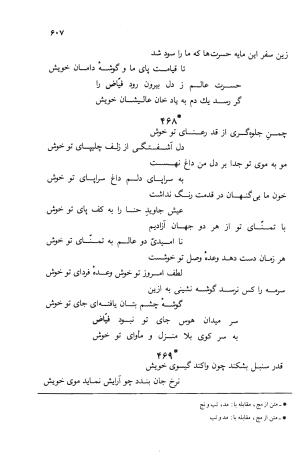 ۶۰۷
زین سفر این مایه حسرت‌ها که ما را سود شد
تا قیامت پای ما و گوشهٔ دامان خویش
حسرت عالم ز دل بیرون رود فیّاض را
گر رسد یك دم به یاد خان عالیشان خویش
*۴۶۸
چمن جلوه‌گری از قد رعنای تو خوش
دل آشفتگی از زلف چلیپای تو خوش
مو به موی تو جدا بر دل من داغ نهست
به سراپای دلم داغ سراپای تو خوش
خون ما بی‌گنهان در قدمت رنگ نداشت
عیش جاوید حنا را به کف پای تو خوش
با تمنّای تو از هر دو جهان آزادیم
نا امیدیّ دو عالم به تمنّای تو خوش
هر زمان دست دهد وعدهٔ وصل تو خوشست
لطف امروز تو خوش وعدهٔ فردای تو خوش
سرمه را کس نرسد گوشه نشینی به ازین
گوشهٔ چشم بتان یافته‌ای جای تو خوش
سر میدان هوس جای تو نبود فیّاض
به سر کوی بلا منزل و مأوای تو خوش
*۴۶۹
قدر سنبل بشکند چون واکند گیسوی خویش
نرخ جان بندد چو آرایش نماید موی خویش
* ـ متن از مج، مقابله با: مد، تب و نج
* ـ متن از مج، مقابله با: مد و تب